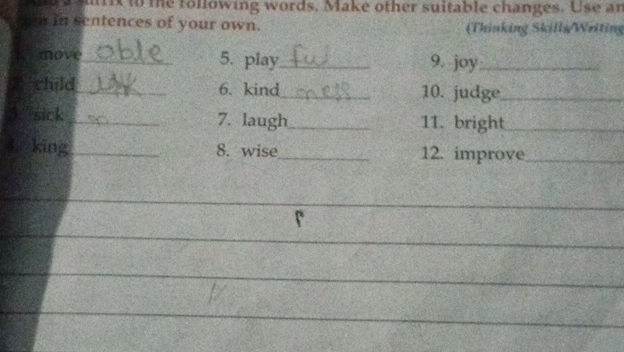 suffix to the following words. Make other suitable changes. Use an
in sentences of your own. (Thinking Skills/Writing
move oble 5. play ful 9. joy
child 6. kind ness 10. judge
sick 7. laugh 11. bright
4. king 8. wise 12. improve